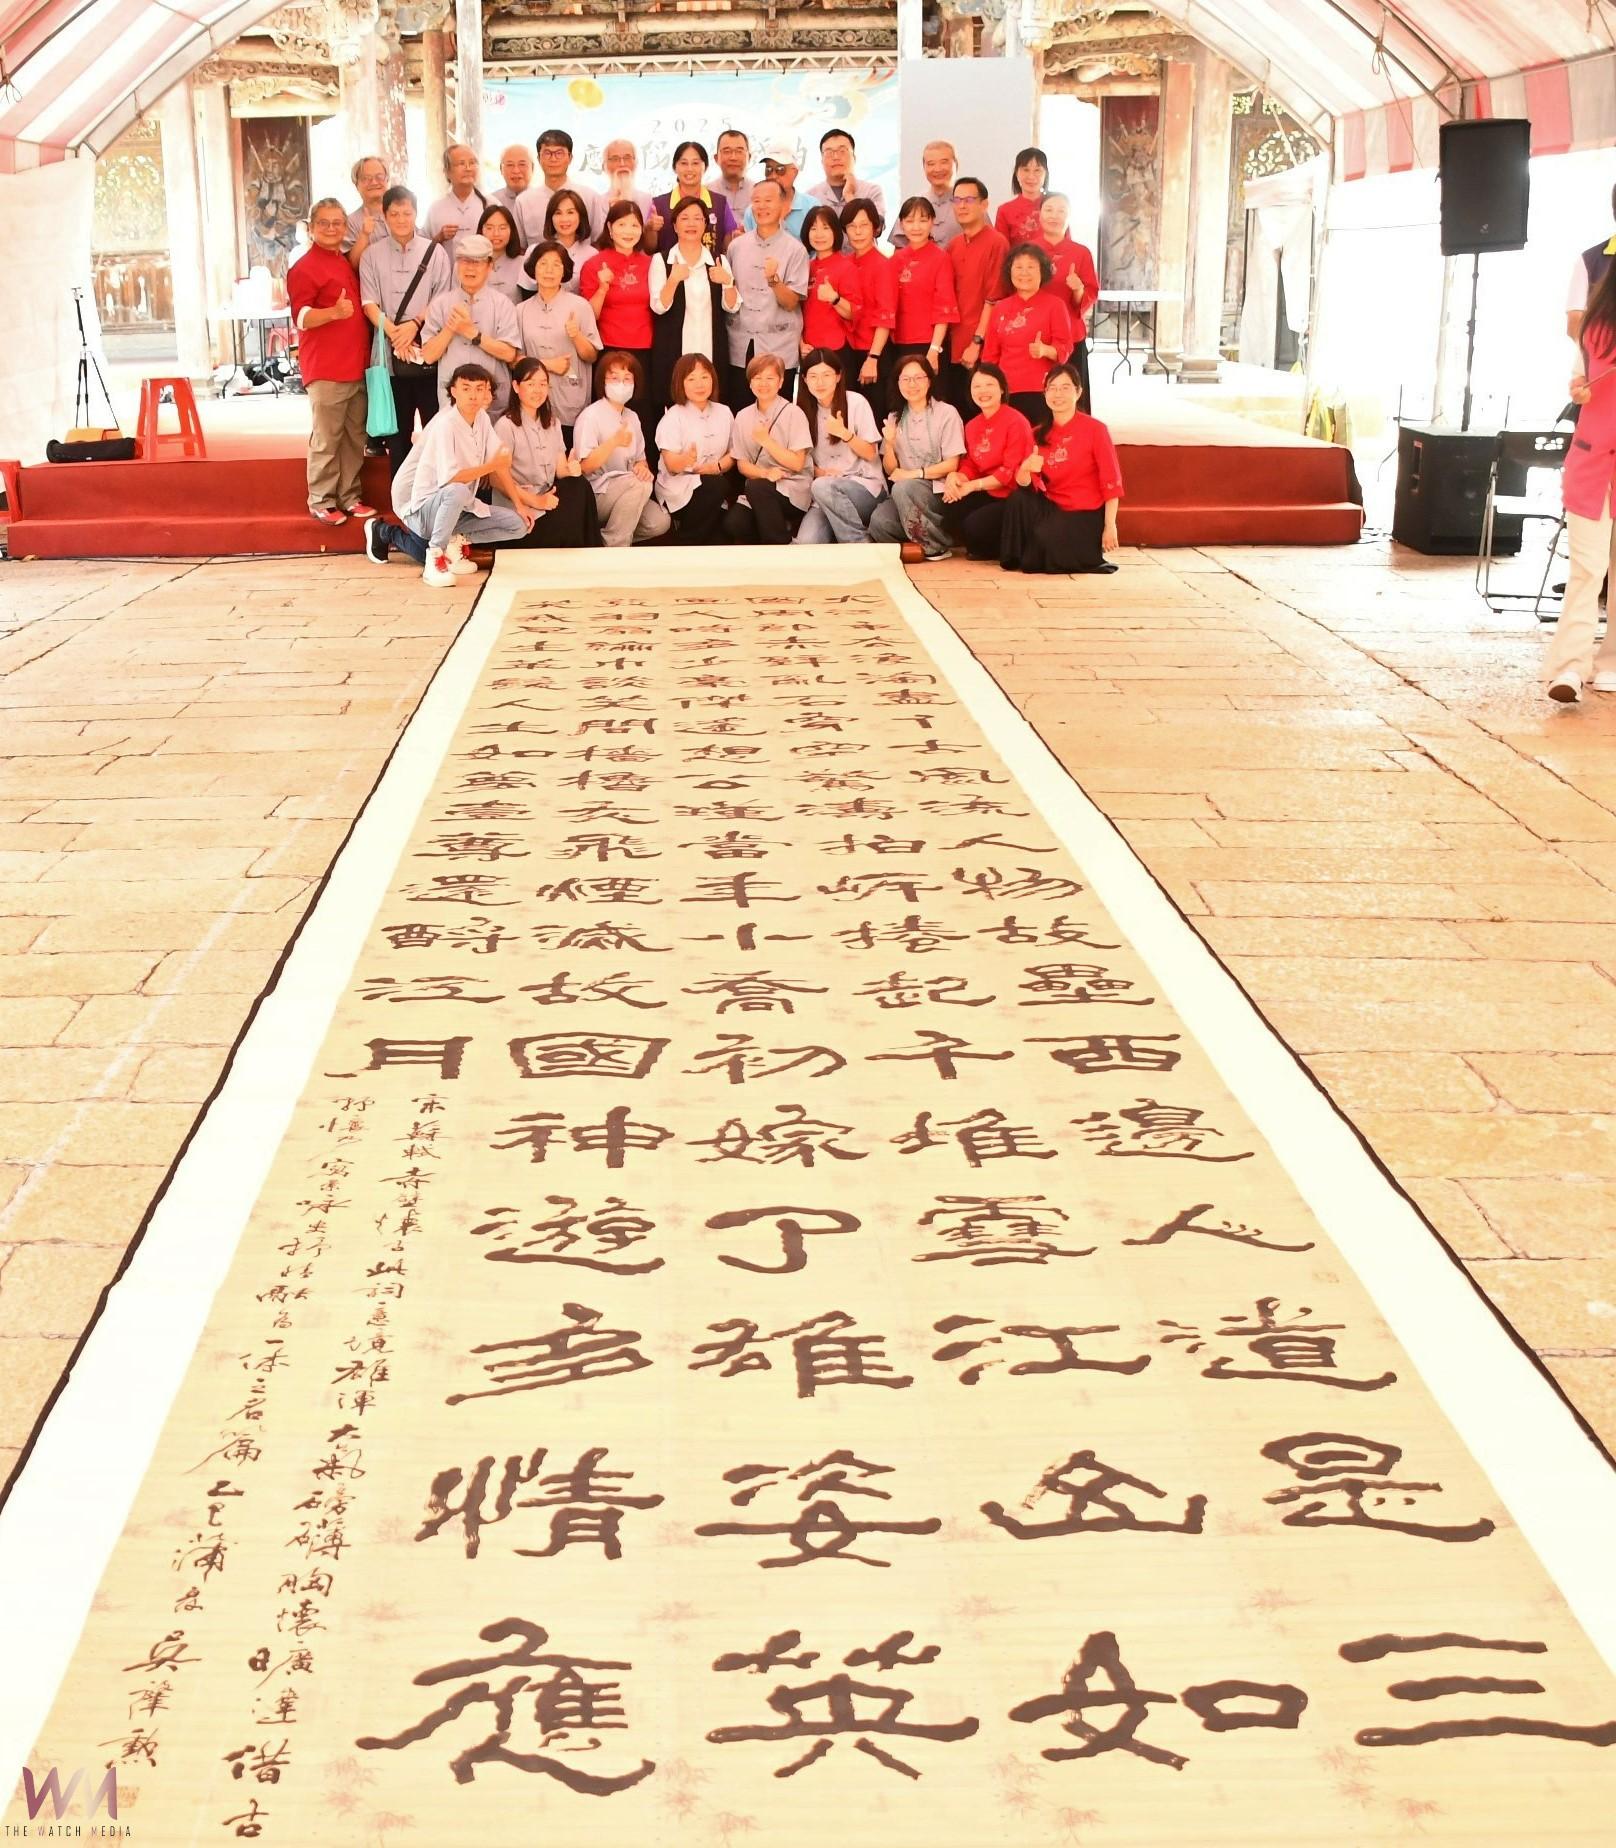 2025
大江東去浪淘盡千古風流人物故壘西邊人道是三
國周郎赤壁亂石穿空驚濤拍岸捲起千堆雪江山如
畫時多少豪傑遙想公瑾當年小喬初嫁了雄姿英
發羽扇綸巾談笑間檣櫓灰飛煙滅故國神遊多情應
笑我早生華髮人生如夢壹尊還酹江月
宋蘇軾赤壁懷古此詞意境雄渾大氣磅礴胸懷曠達借古
抒懷乃寫景咏史抒情融為一体之名篇 乙巳蒲夏 吳肇勳
WM
THE WATCH MEDIA